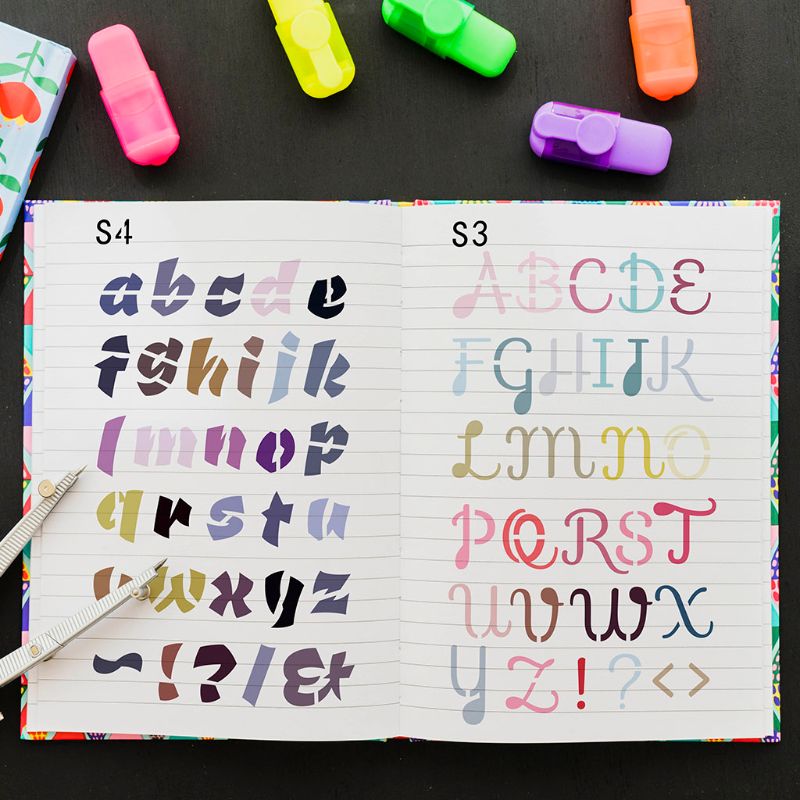 S4
abcde
fghijk
lmnop
qrstu
vwxyz
~!?/&*
S3
ABCDE
FGHIJK
LMNO
PQRST
UVWX
YZ!?<>